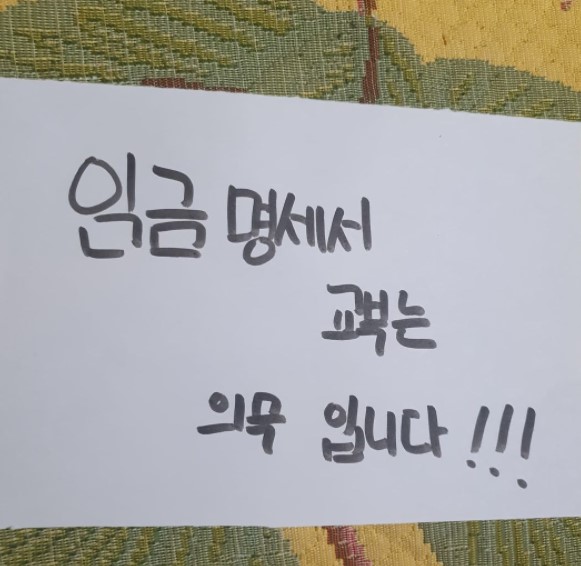 인금 명세서
교부는
의무 입니다!!!